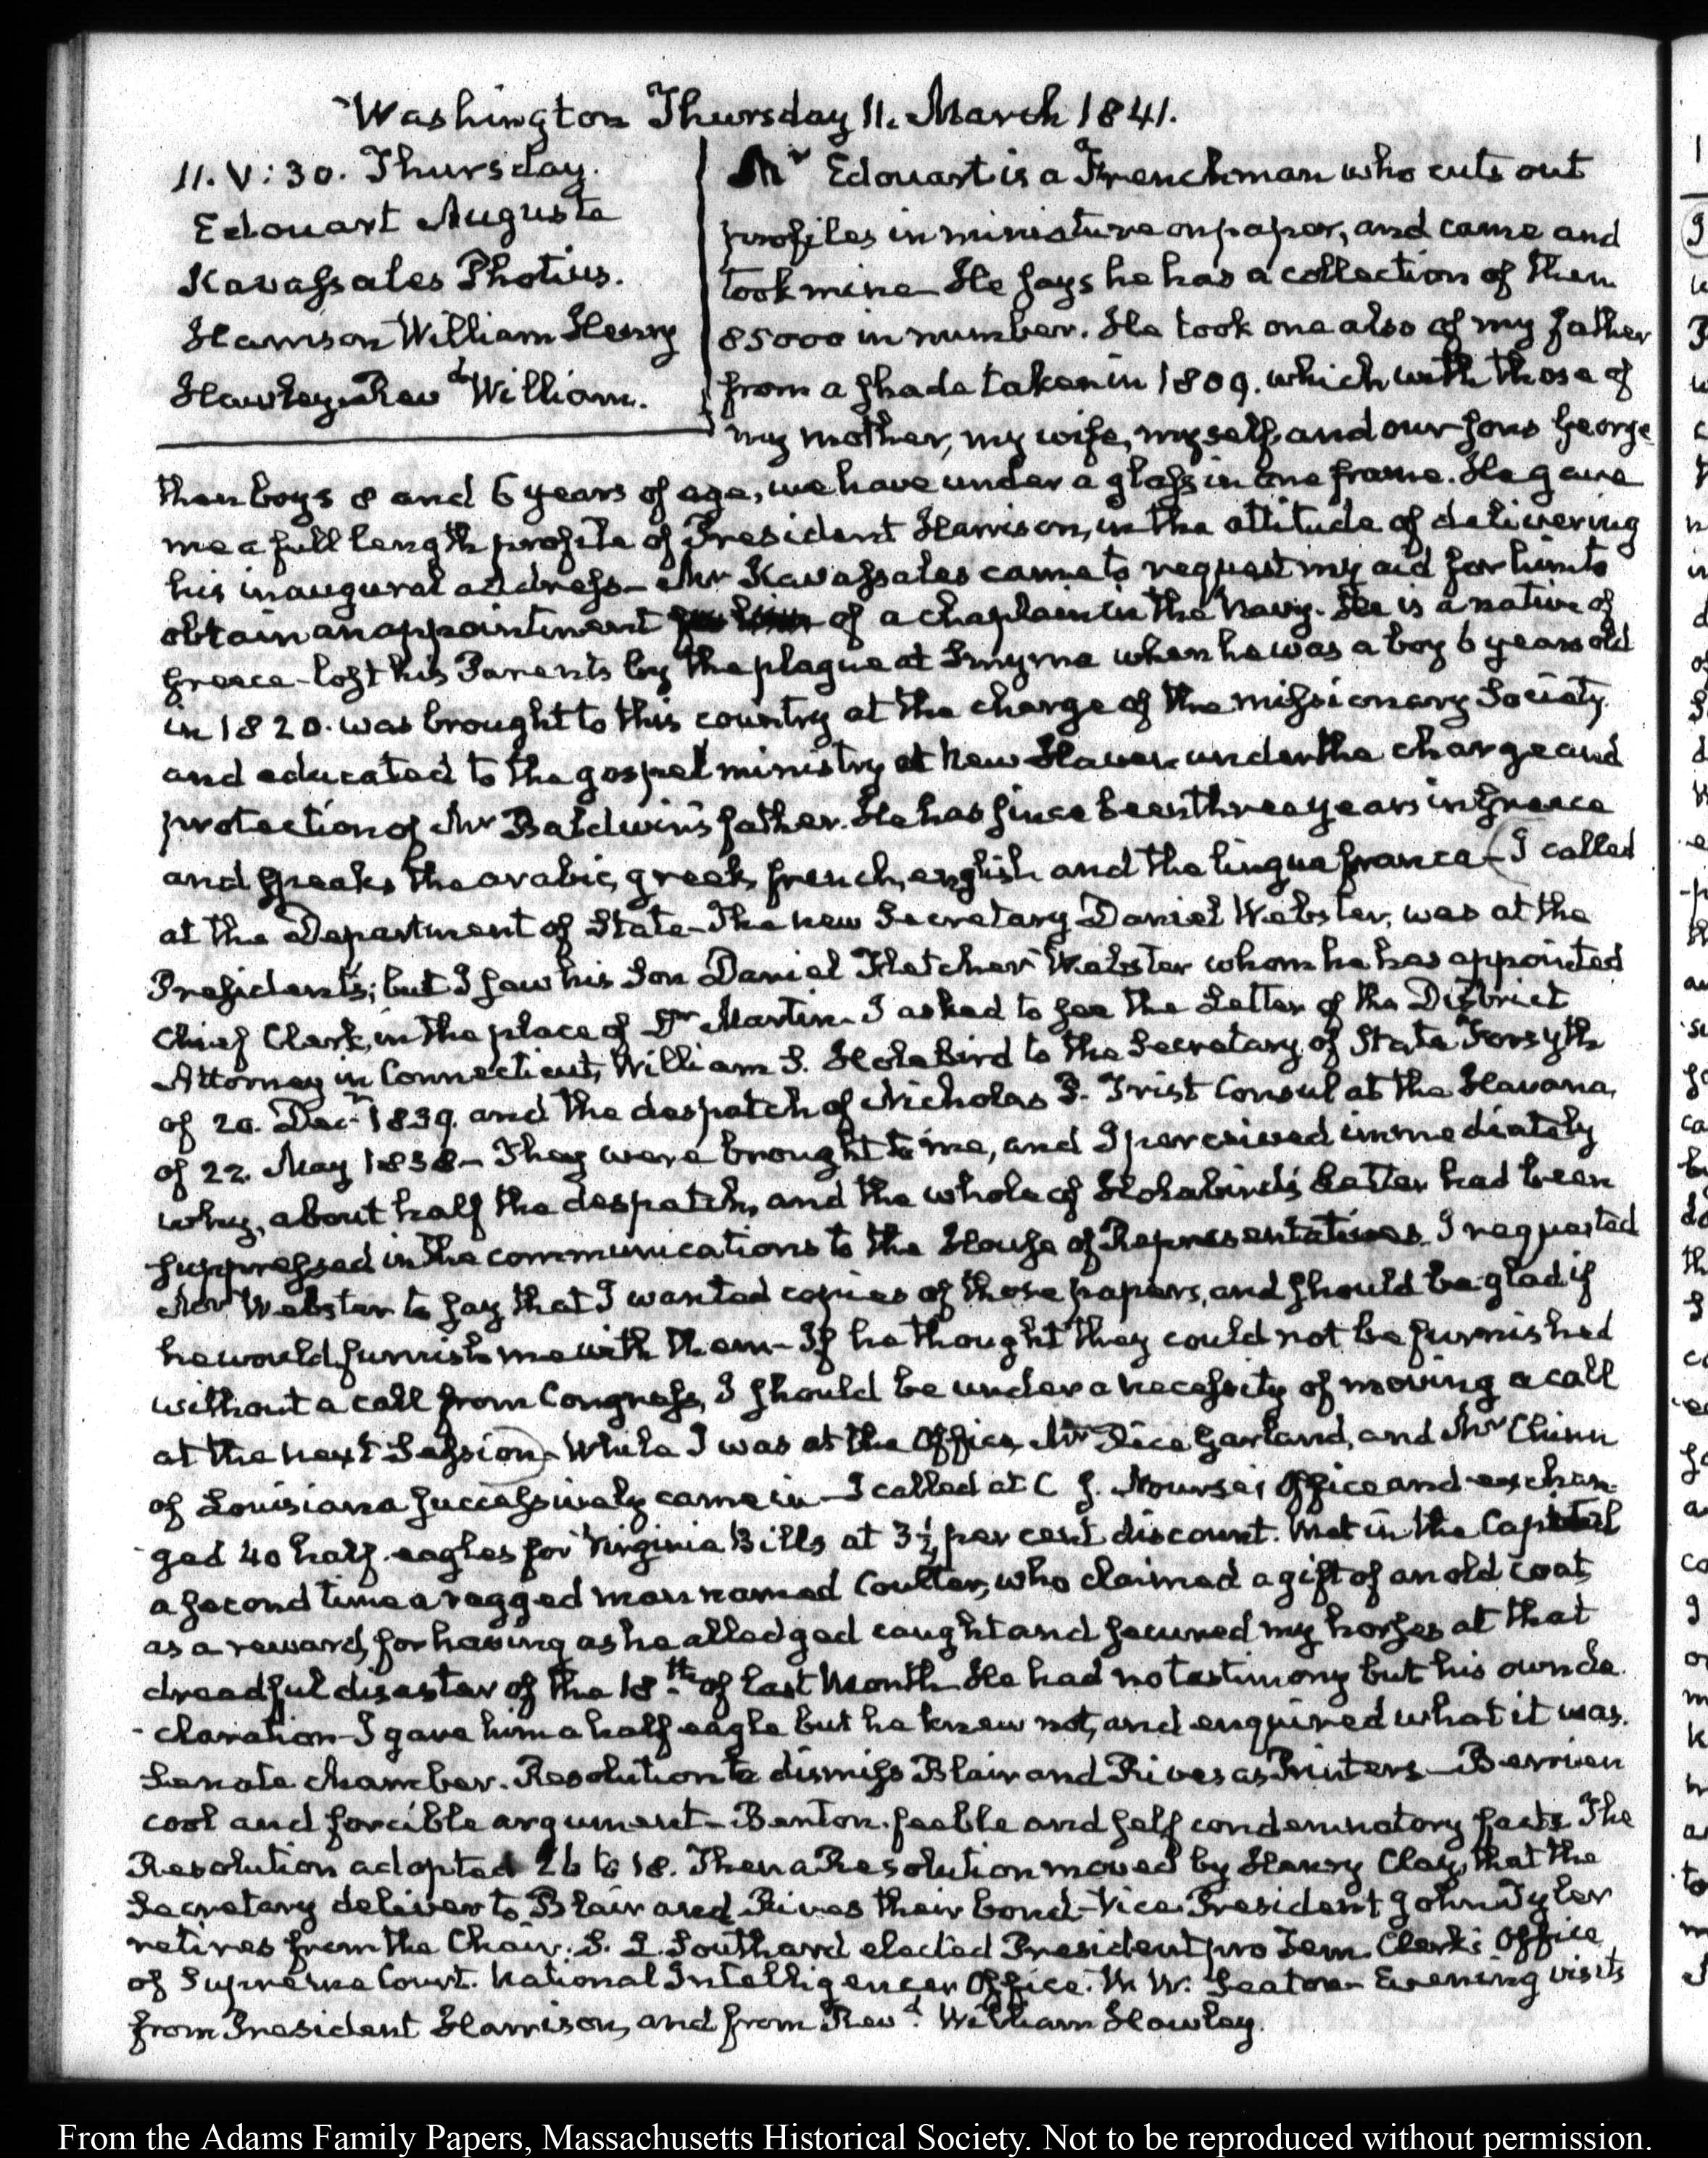 Washington Thursday 11. March 1841.
11. V:30. Thursday.
Edouart Auguste
Kavassales Photius.
Harrison William Henry
Hawley Revd William.
Mr Edouart is a Frenchman who cuts out
profiles in miniature on paper, and came and
took mine— He says he has a collection of them
85000 in number. He took one also of my father
from a shade taken in 1809. which with those of
my mother, my wife, myself, and our sons George
then boys 8 and 6 years of age, we have under a glass in one frame. He gave
me a full length profile of President Harrison, in the attitude of delivering
his inaugural address— Mr Kavassales came to request my aid for him to
obtain an appointment of a chaplain in the Navy. He is a native of
Greece— lost his Parents by the plague at Smyrna when he was a boy 6 years old
in 1820. was brought to this country at the charge of the missionary Society
and educated to the gospel ministry at New Haven under the charge and
protection of Mr Baldwin's father. He has since been three years in Greece
and speaks the arabic, greek, french, english and the lingua franca— I called
at the Department of State— The new Secretary Daniel Webster, was at the
President's; but I saw his Son Daniel Fletcher Webster whom he has appointed
Chief Clerk, in the place of Dr Martin— I asked to see the Letter of the District
Attorney in Connecticut, William S. Holabird to the Secretary of State Forsyth
of 20. Decr 1839. and the despatch of Nicholas P. Trist Consul at the Havana,
of 22. May 1838— They were brought to me, and I perceived immediately
why, about half the despatch, and the whole of Holabird's Letter had been
suppressed in the communications to the House of Representatives. I requested
Mr Webster to say that I wanted copies of those papers, and should be glad if
he would furnish me with them— If he thought they could not be furnished
without a call from Congress, I should be under a necessity of moving a call
at the next Session— While I was at the Office, Mr Rice Garland, and Mr Chinn
of Louisiana successively came in— I called at C J. Nourse's Office and exchan-
-ged 40 half-eagles for Virginia Bills at 3½ per cent discount. Met in the Capitol
a second time a ragged man named Coulter, who claimed a gift of an old coat,
as a reward, for having as he alledged caught and secured my horses at that
dreadful disaster of the 18th of last Month— He had no testimony but his own de-
-claration— I gave him a half-eagle but he knew not, and enquired what it was.
Senate chamber. Resolution to dismiss Blair and Rives as Printers— Berrien
cool and forcible argument— Benton. feeble and self condemnatory facts. The
Resolution adopted 26 to 18. Then a Resolution moved by Henry Clay, that the
Secretary deliver to Blair and Rives their bond— Vice-President John Tyler
retires from the Chair. S. L. Southard elected President pro Tem. Clerk's Office
of Supreme Court. National Intelligencer Office. W. W. Seaton— Evening visits
from President Harrison, and from Revd. William Hawley.
From the Adams Family Papers, Massachusetts Historical Society. Not to be reproduced without permission.